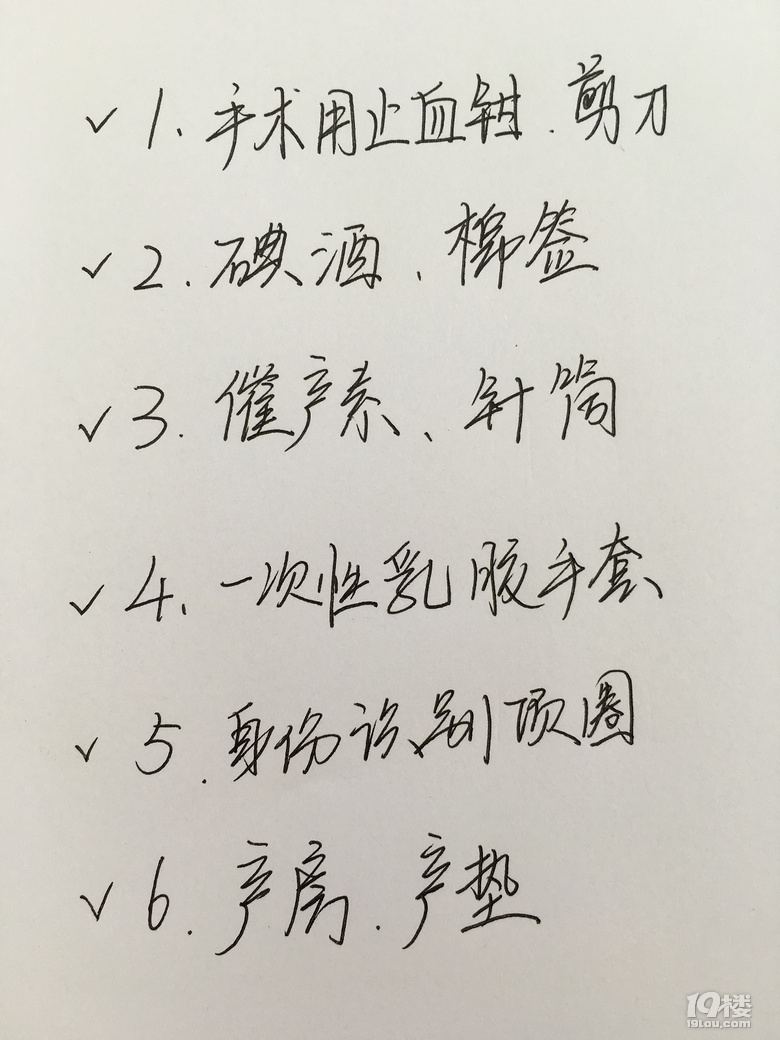 ✓ 1、手术用止血钳、剪刀
✓ 2、碘酒、棉签
✓ 3、催产素、针筒
✓ 4、一次性乳胶手套
✓ 5、身份识别项圈
✓ 6、产房、产垫
19楼
19lou.com